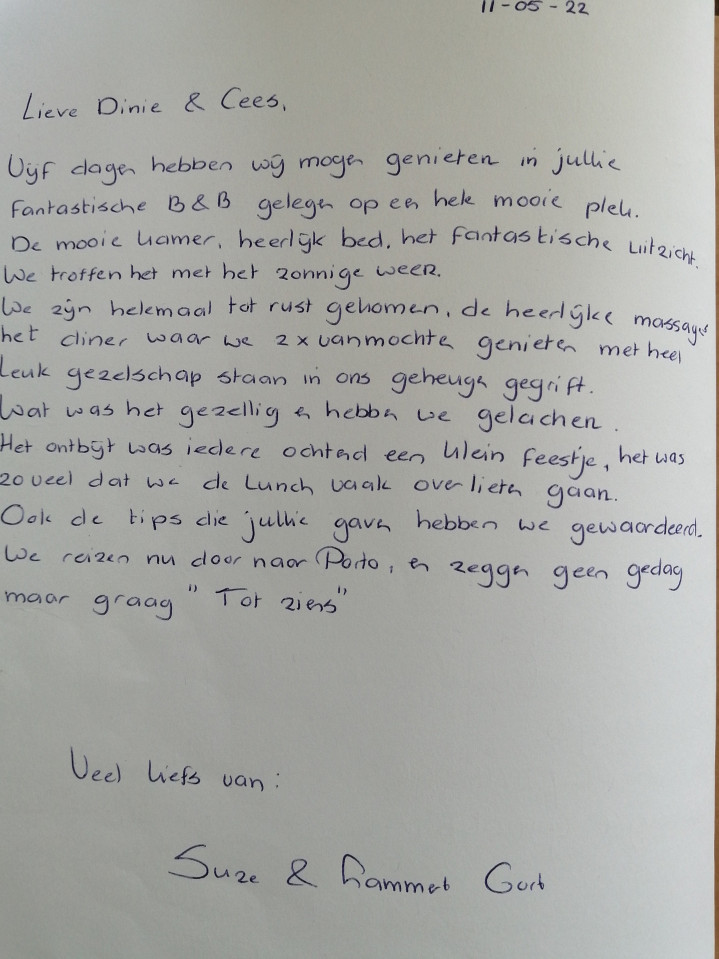 11-05-22
Lieve Dinie & Cees,
Vijf dagen hebben wij mogen genieten in jullie
fantastische B&B gelegen op een hele mooie plek.
De mooie kamer, heerlijk bed, het fantastische uitzicht.
We troffen het met het zonnige weer.
We zijn helemaal tot rust gekomen, de heerlijke massages
het diner waar we 2x van mochten genieten met heel
leuk gezelschap staan in ons geheugen gegrift.
Wat was het gezellig en hebben we gelachen.
Het ontbijt was iedere ochtend een klein feestje, het was
zoveel dat we de Lunch vaak overlieten gaan.
Ook de tips die jullie gaven hebben we gewaardeerd.
We reizen nu door naar Porto, en zeggen geen gedag
maar graag "Tot ziens"
Veel liefs van:
Suze &